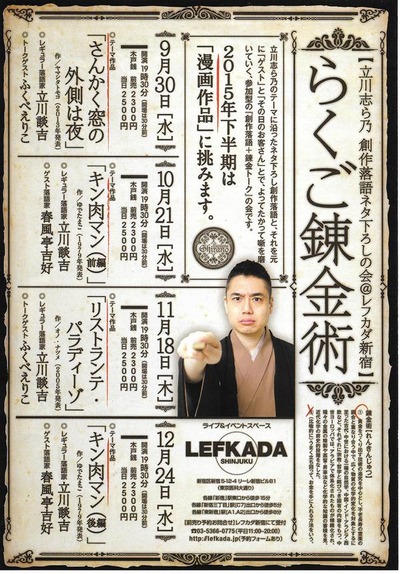 【立川志ら乃 創作落語ネタ下ろしの会@レフカダ新宿】
らくご錬金術
立川志ら乃のテーマに沿ったネタ下ろし創作落語と、それを元
に、「ゲスト」と「その日のお客さん」とで、よってたかって噺を磨
いていく、参加型の「創作落語+錬金トーク」の会です。
2015年下半期は
「漫画作品」に挑みます。
Shirano
9月30日[水]
開演19時30分(開場は30分前)
木戸銭 前売2300円
当日2500円
◎テーマ作品
「さんかく窓の
外側は夜」
作/ヤマシタトモコ(2013年発表)
◎レギュラー落語家 立川談吉
◎トークゲスト ふくべえりこ
10月21日[水]
開演19時30分(開場は30分前)
木戸銭 前売2300円
当日2500円
◎テーマ作品
「キン肉マン」前編
作/ゆでたまご(1979年発表)
◎レギュラー落語家 立川談吉
◎ゲスト落語家 春風亭吉好
11月18日[水]
開演19時30分(開場は30分前)
木戸銭 前売2300円
当日2500円
◎テーマ作品
「リストランテ・
パラディーゾ」
作/オノ・ナツメ(2005年発表)
◎レギュラー落語家 立川談吉
◎トークゲスト ふくべえりこ
12月24日[木]
開演19時30分(開場は30分前)
木戸銭 前売2300円
当日2500円
◎テーマ作品
「キン肉マン」後編
作/ゆでたまご(1979年発表)
◎レギュラー落語家 立川談吉
◎ゲスト落語家 春風亭吉好
錬金術(れんきんじゅつ)
ライブ&イベントスペース
LEFKADA
SHINJUKU
新宿区新宿5-12-4 リーレ新宿ビルB1
(東京医科大通り)
各線「新宿」駅東口から徒歩15分
各線「新宿三丁目」駅C7出口から徒歩5分
各線「東新宿」駅A1,A2出口から徒歩8分
【前売り予約お問合せ】レフカダ新宿にて受付
☎03-5366-0775(平日11:00〜20:00)
http://lefkada.jp(予約フォームあり)